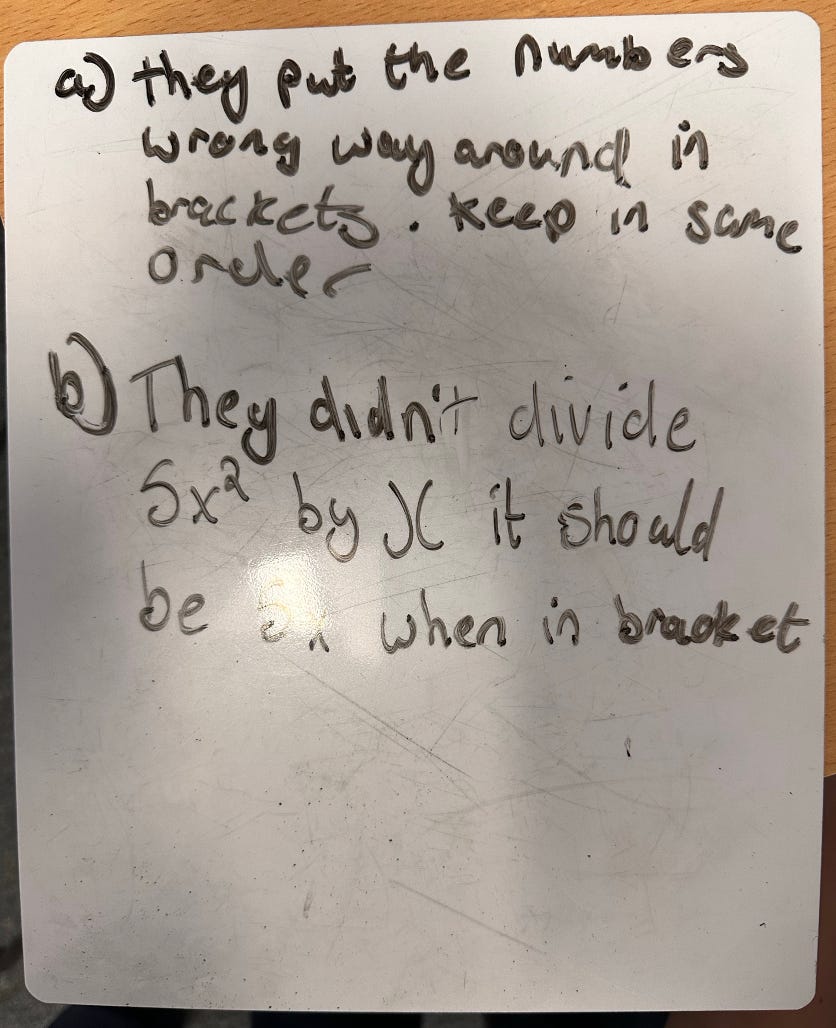 a) they put the numbers
wrong way around in
brackets. keep in same
order
b) They didn't divide
5x² by x it should
be 5x when in bracket